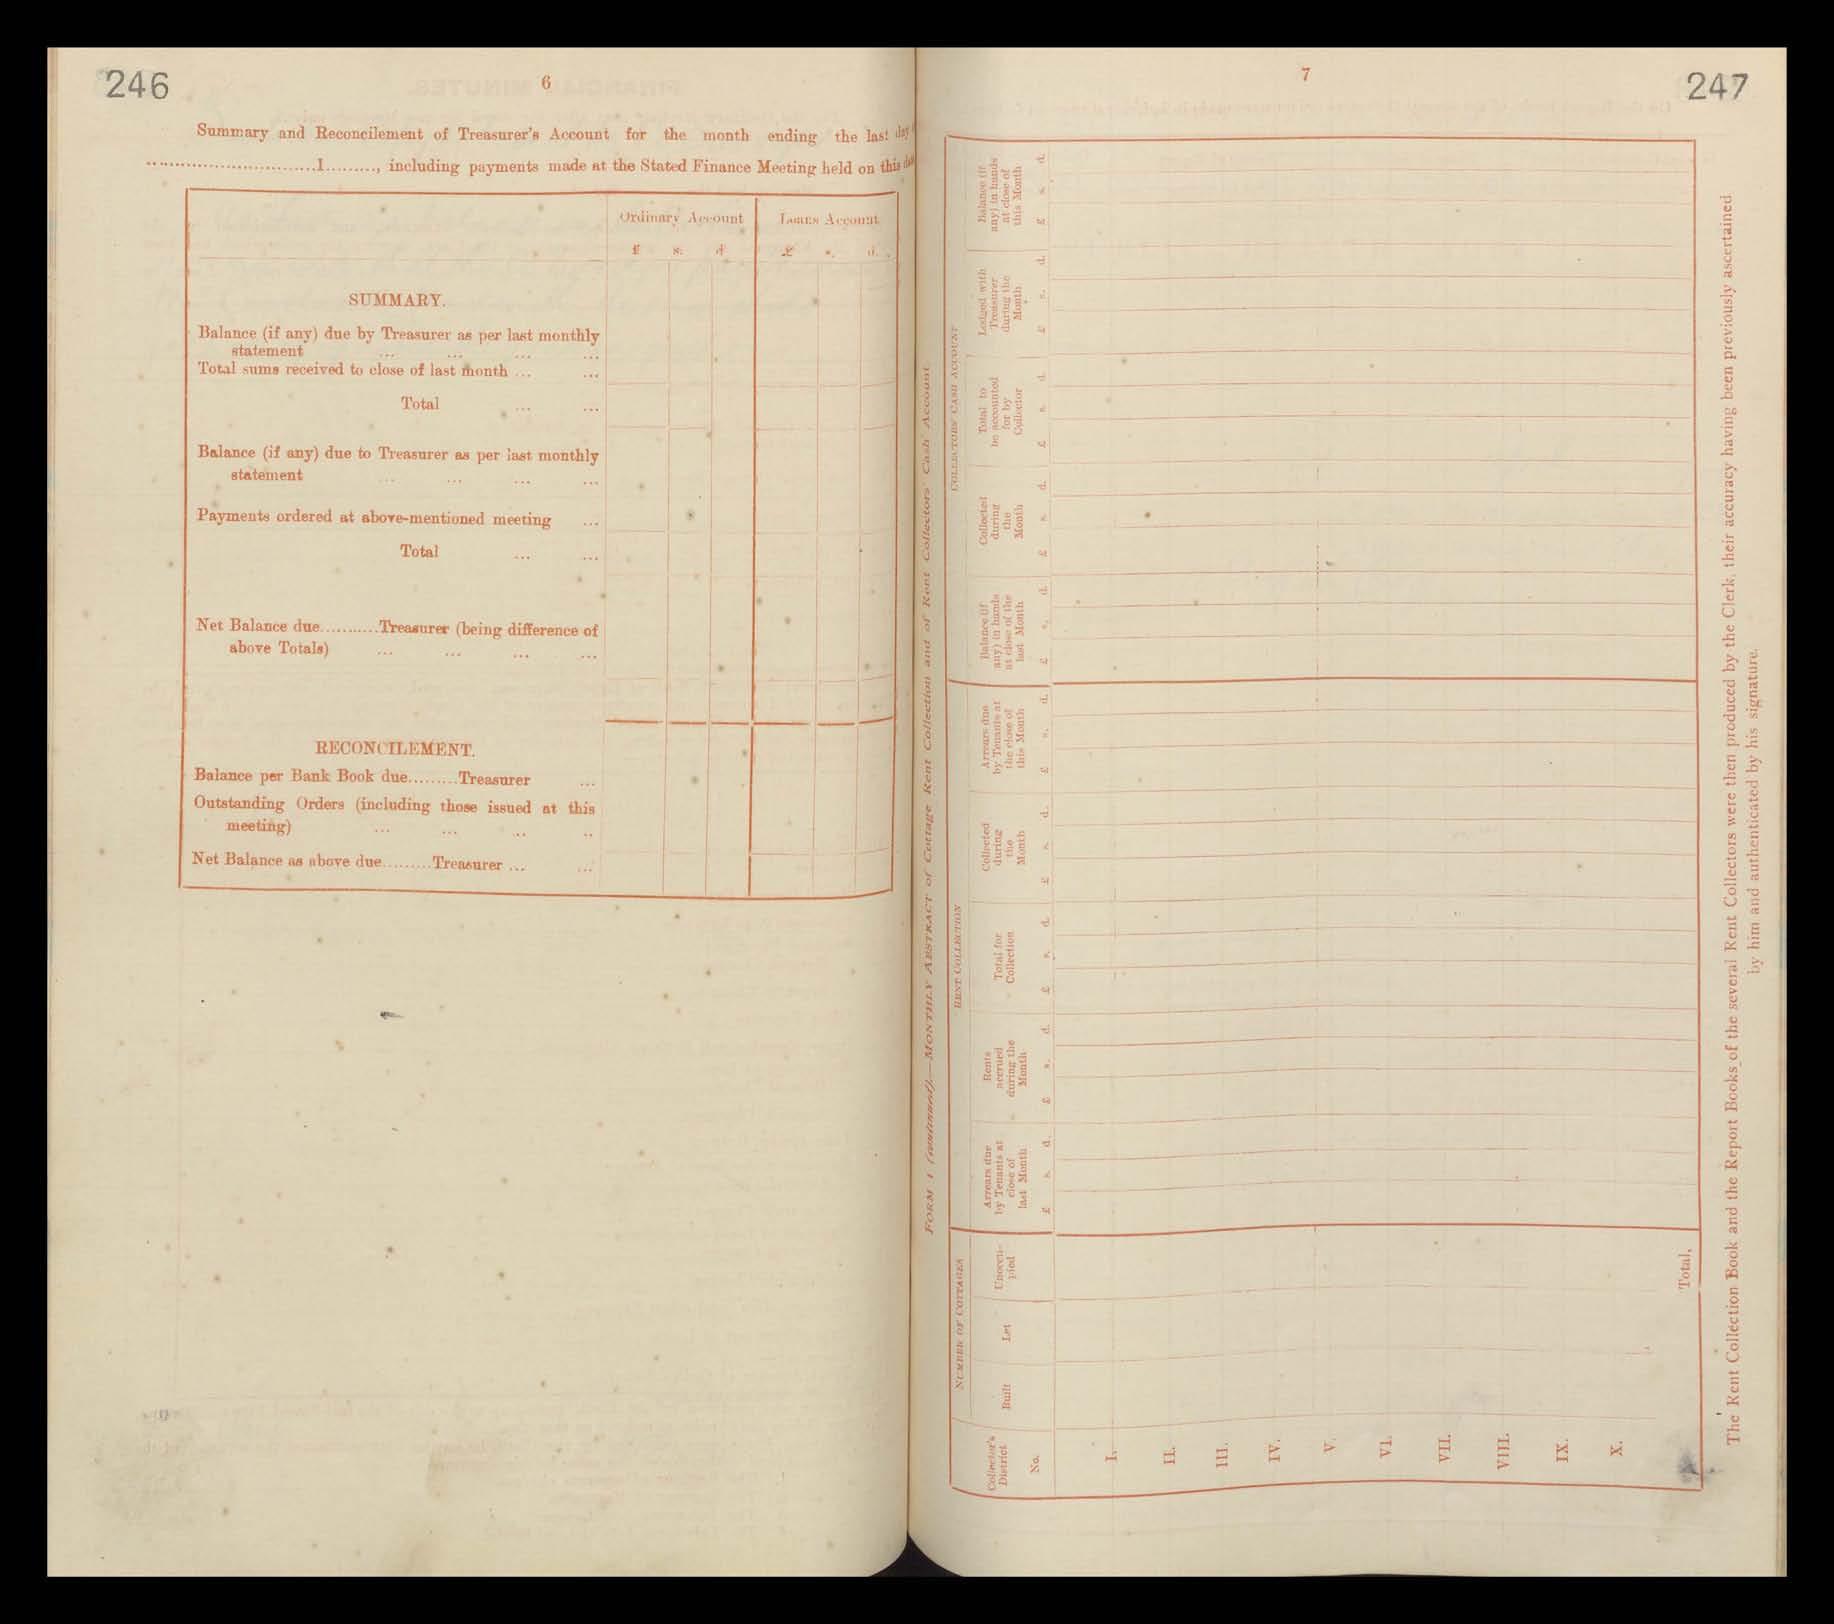 246
6
Summary and Reconcilement of Treasurer's Account for the month ending the last day
..............................1........., including payments made at the Stated Finance Meeting held on this date
Ordinary Account Loans Account
£ s. d £ s. d.
SUMMARY.
Balance (if any) due by Treasurer as per last monthly
statement ... ... ... ...
Total sums received to close of last month ... ...
Total ... ...
Balance (if any) due to Treasurer as per last monthly
statement ... ... ... ...
Payments ordered at above-mentioned meeting ...
Total ... ...
Net Balance due...........Treasurer (being difference of
above Totals) ... ... ... ...
RECONCILEMENT.
Balance per Bank Book due.........Treasurer ...
Outstanding Orders (including those issued at this
meeting) ... ... ... ..
Net Balance as above due.........Treasurer ... ...
7
247
FORM 1 (continued).—MONTHLY ABSTRACT of Cottage Rent Collection and of Rent Collectors' Cash Account
NUMBER OF COTTAGES
RENT COLLECTION
COLLECTORS' CASH ACCOUNT
Collector's
District
No.
Built
Let
Unoccu-
pied
Arrears due
by Tenants at
close of
last Month
£ s. d.
Rents
accrued
during the
Month
£ s. d.
Total for
Collection
£ s. d.
Collected
during
the
Month
£ s. d.
Arrears due
by Tenants at
the close of
this Month
£ s. d.
Balance (if
any) in hands
at close of the
last Month
£ s. d.
Collected
during
the
Month
£ s. d.
Total to
be accounted
for by
Collector
£ s. d.
Lodged with
Treasurer
during the
Month
£ s. d.
Balance (if
any) in hands
at close of
this Month
£ s. d.
I.
II.
III.
IV.
V.
VI.
VII.
VIII.
IX.
X.
Total,
The Rent Collection Book and the Report Books of the several Rent Collectors were then produced by the Clerk, their accuracy having been previously ascertained
by him and authenticated by his signature.